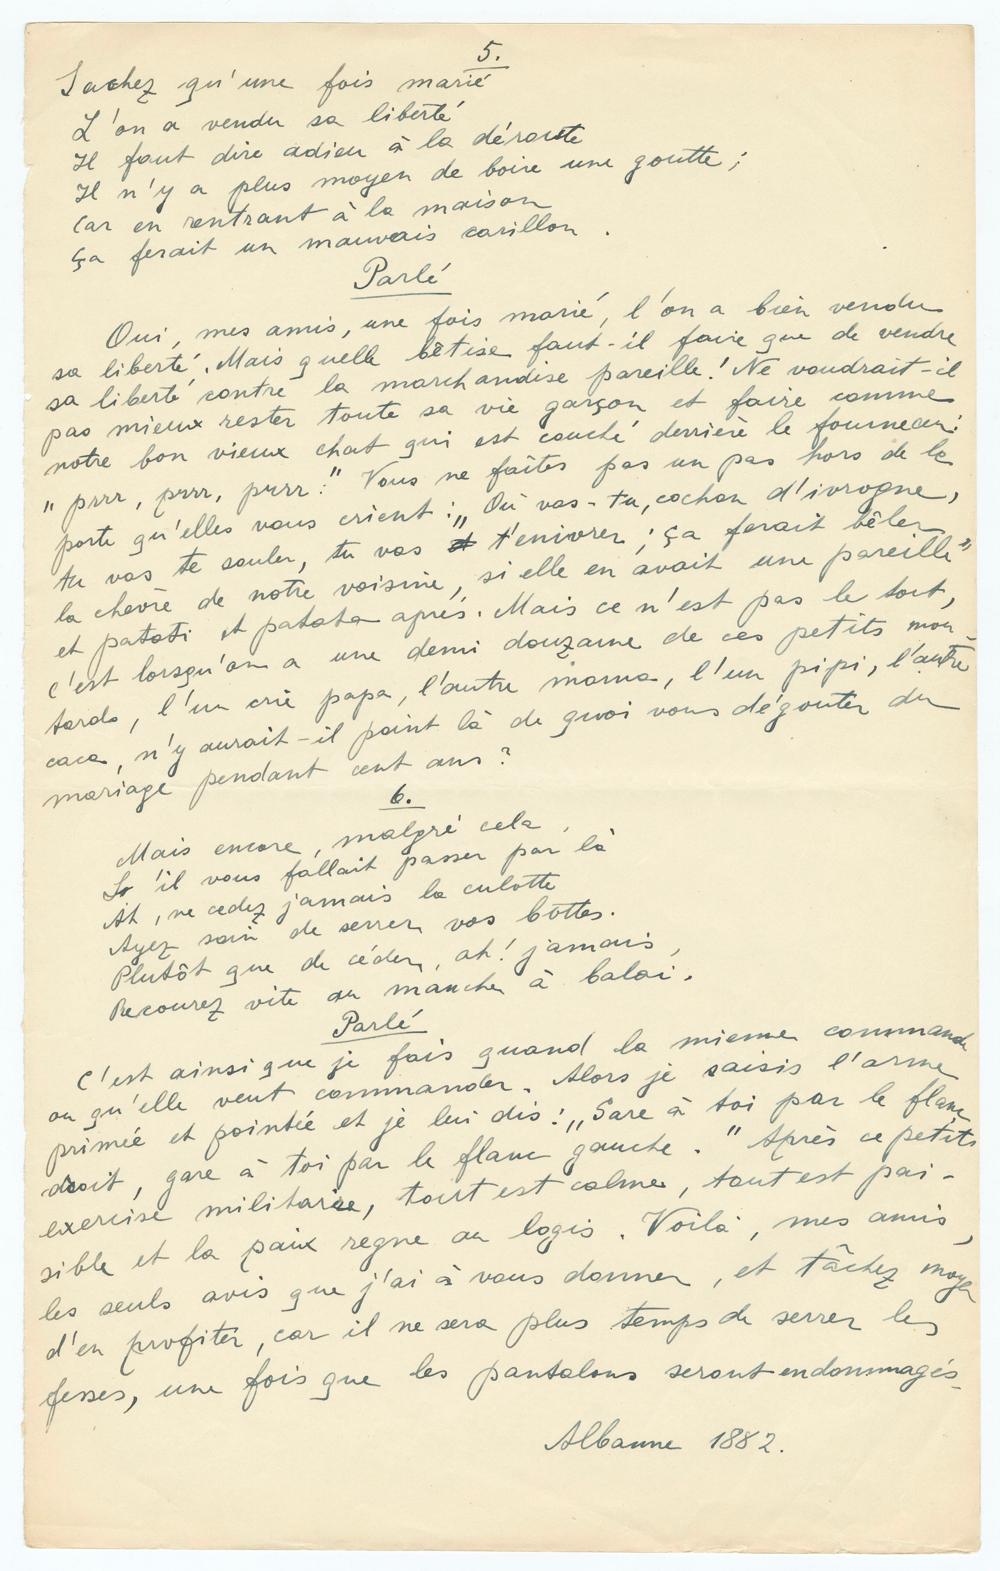 5.
Sachez qu'une fois marié
L'on a vendu sa liberté
Il faut dire adieu à la déroute
Il n'y a plus moyen de boire une goutte ;
Car en rentrant à la maison
ça ferait un mauvais carillon .
Parlé
Oui, mes amis, une fois marié, l'on a bien vendu
sa liberté. Mais quelle bêtise faut-il faire que de vendre
sa liberté contre la marchandise pareille ! Ne voudrait-il
pas mieux rester toute sa vie garçon et faire comme
notre bon vieux chat qui est couché derrière le fourneau :
" prrr, prrr, prrr ! " Vous ne faites pas un pas hors de la
porte qu'elles vous crient : „ Où vas-tu, cochon d'ivrogne,
tu vas te souler, tu vas t'enivrer ; ça ferait bêler
la chèvre de notre voisine, si elle en avait une pareille "
et patati et patata après. Mais ce n'est pas le tout,
c'est lorsqu'on a une demi douzaine de ces petits mou-
tards, l'un crie papa, l'autre mama, l'un pipi, l'autre
caca, n'y aurait-il point là de quoi vous dégouter du
mariage pendant cent ans ?
6.
Mais encore, malgré cela,
S'il vous fallait passer par là
Ah, ne cedez jamais la culotte
Ayez soin de serrer vos bottes.
Plutôt que de céder, ah ! jamais,
Recourez vite au manche à balai.
Parlé
C'est ainsi que je fais quand la mienne commande
ou qu'elle veut commander. Alors je saisis l'arme
primée et pointée et je lui dis : „ Gare à toi par le flanc
droit, gare à toi par le flanc gauche. " Après ce petits
exercise militaire, tout est calme, tout est pai-
sible et la paix regne au logis. Voilà, mes amis,
les seuls avis que j'ai à vous donner, et tâchez moyen
d'en profiter, car il ne sera plus temps de serrer les
fesses, une fois que les pantalons seront endommagés.
Albanne 1882.